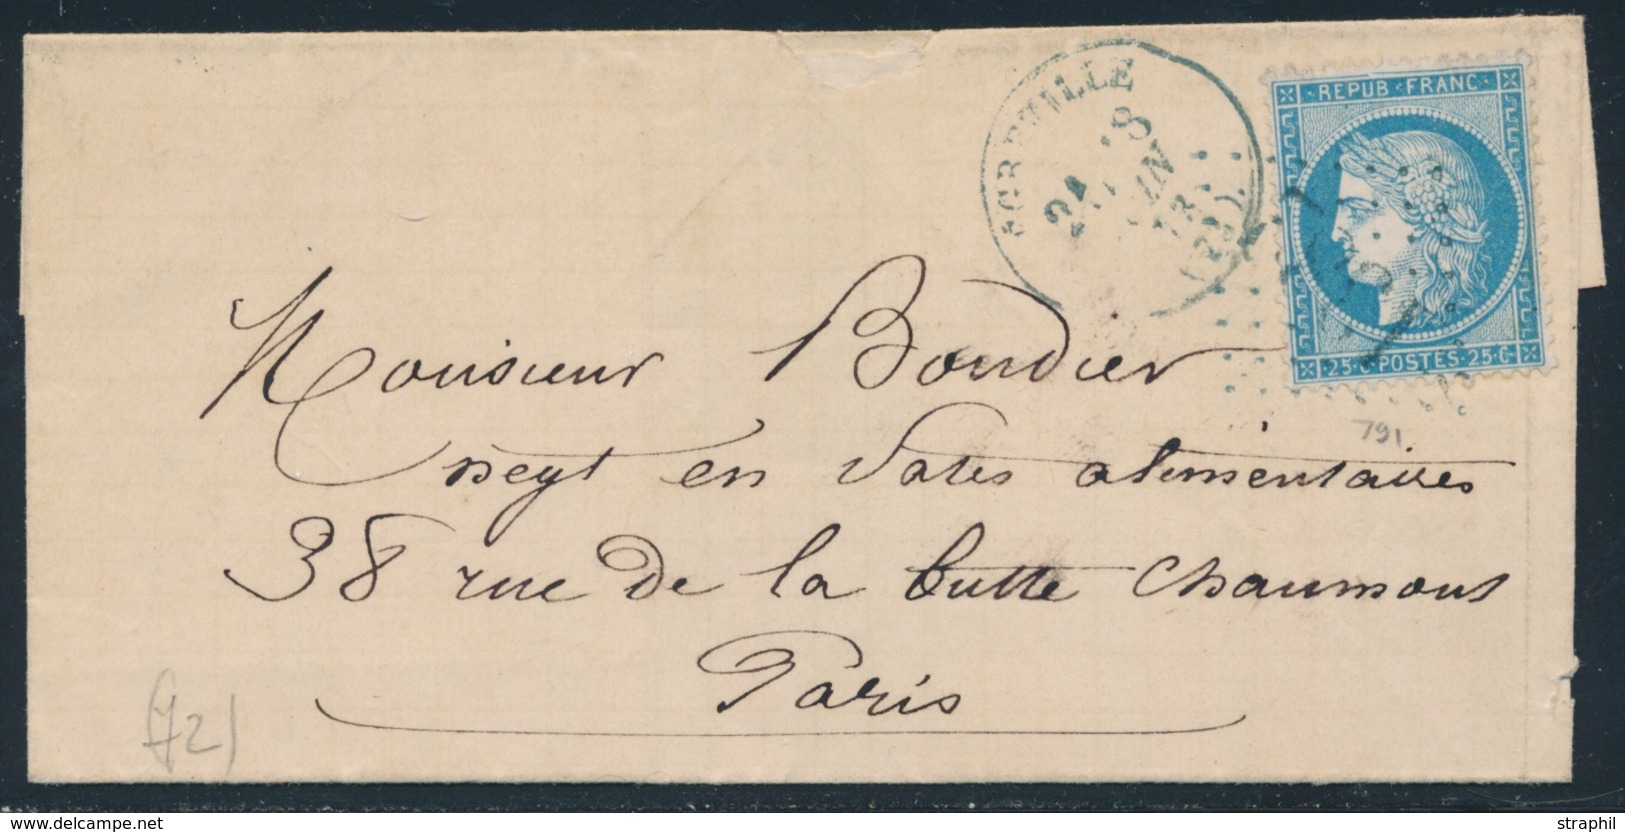 REPUB·FRANC·
25·C POSTES·25·C
791.
Monsieur Boudier
negt en Pates alimentaires
38 rue de la butte chaumont
Paris
(72)
www.delcampe.net
straphil